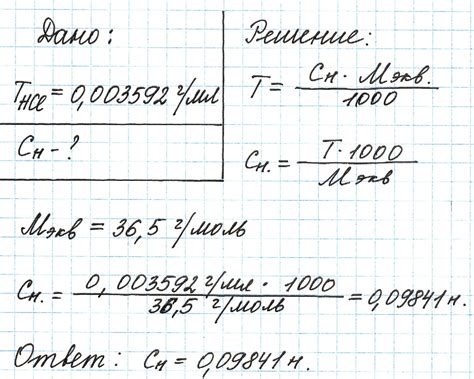 Дано:
T HCl = 0,003592 г/мл
Сн - ?
Решение:
T = Сн · Мэкв. / 1000
Сн. = T · 1000 / Мэкв
Мэкв = 36,5 г/моль
Сн. = 0,003592 г/мл · 1000 / 36,5 г/моль = 0,09841 н.
Ответ: Сн = 0,09841 н.